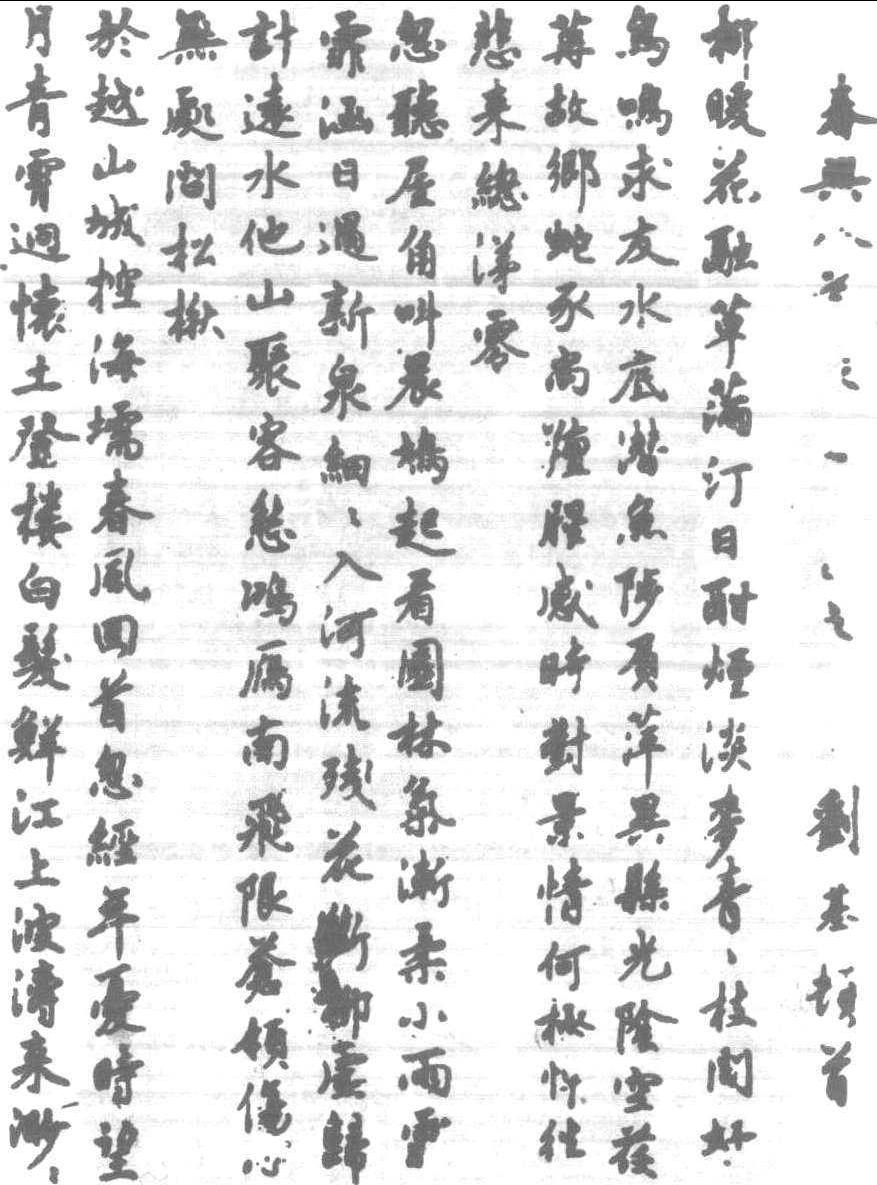 春興八首之一、之 劉基頓首
柳暖花融草滿汀日酣煙淡麥青、枝間好
鳥鳴求友水底潛魚陟負萍異縣光陰空荏
苒故鄉蛇豕尚羶腥感時對景情何極忤往
悲來總涕零
忽聽屋角叫晨鳩起看園林氣漸柔小雨雪
霏涵日過新泉細、入河流殘花斷柳虛歸
計遠水他山聚客愁鳴雁南飛限蒼嶺傷心
無處問松楸
於越山城控海壖春風回首忽經年憂時望
月青霄迥懷土登樓白髮鮮江上波濤來渺、